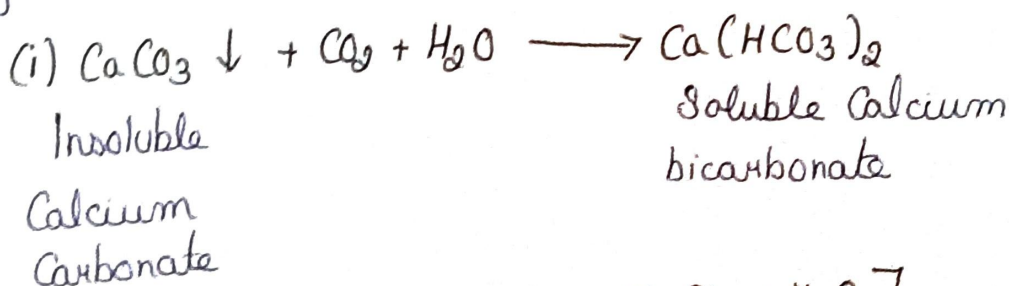 (i) CaCO₃ ↓ + CO₂ + H₂O ⟶ Ca(HCO₃)₂
Insoluble Calcium Carbonate
Soluble Calcium bicarbonate